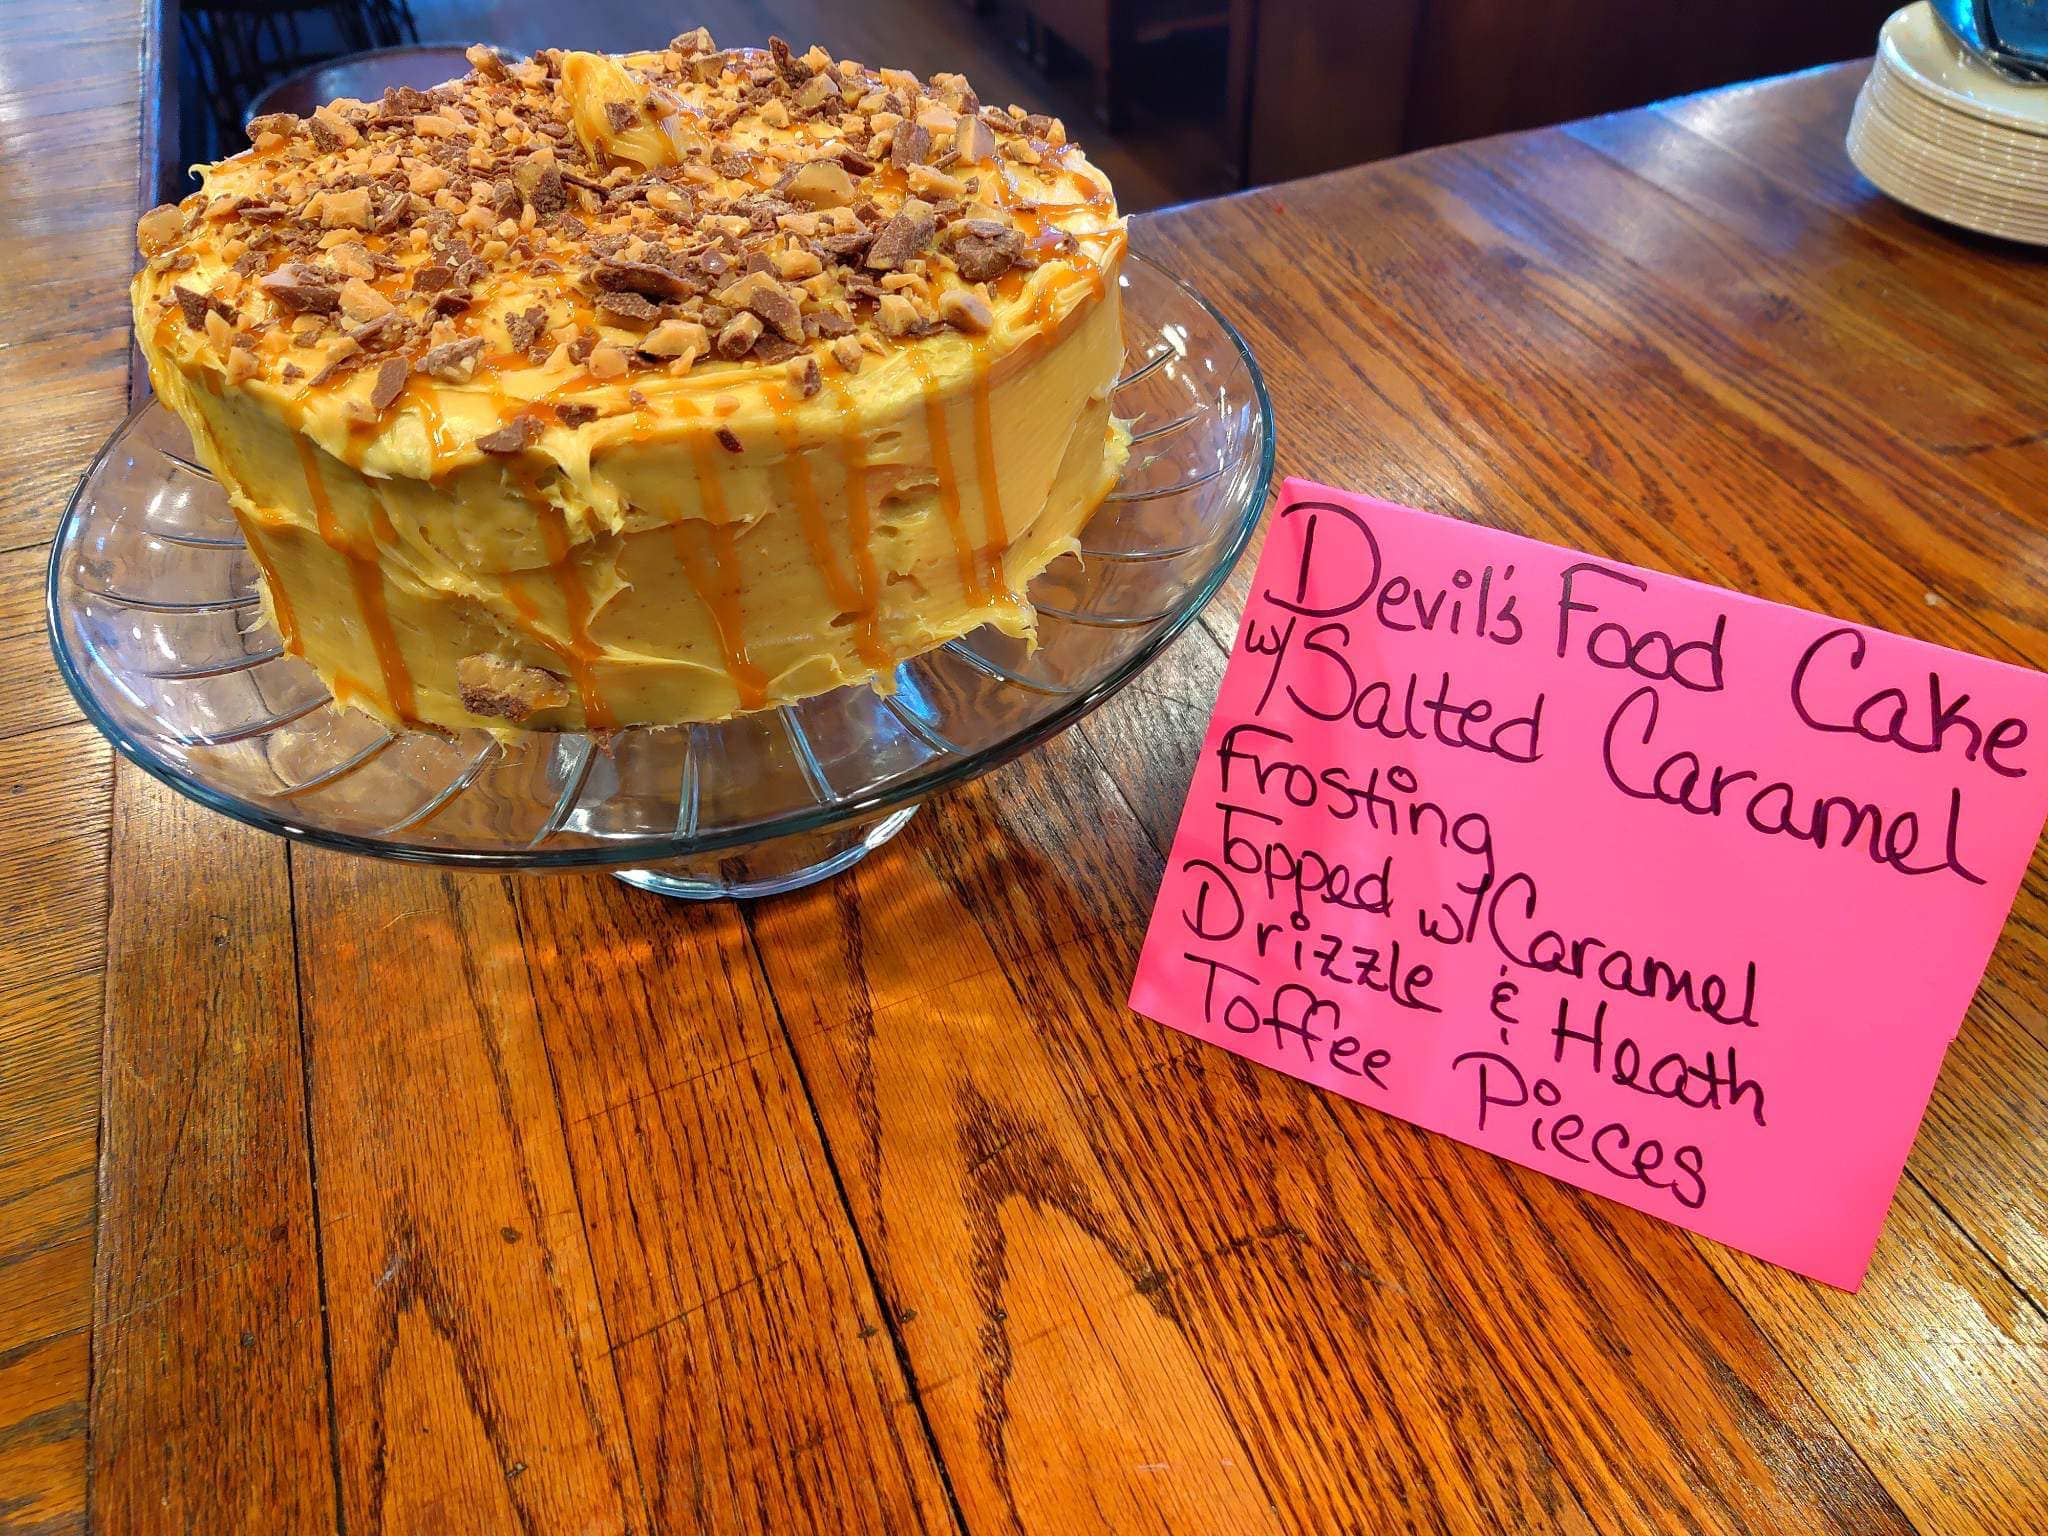 Devil's Food Cake
w/Salted Caramel
Frosting
Topped w/Caramel
Drizzle & Heath
Toffee Pieces